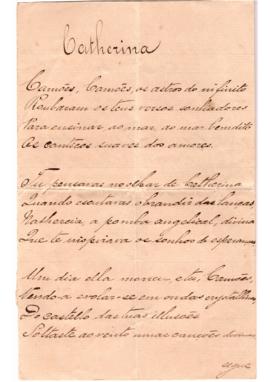 Catherina
Camões, Camões, os astros do infinito
Roubaram os teus versos sonhadores
Para ensinar, ao mar, ao mar bemdito
Os canticos suaves dos amores.
Tu pensavas no olhar de Catherina
Quando escutavas o brandir das lanças,
Nathercia, a pomba angelical, divina
Que te inspirava os sonhos de esperanças
Um dia ella morreu, e tu, Camões,
Vendo-a evolar-se em ondas crystallinas
Do castello das tuas illusões
Soltaste ao vento numas canções
segue